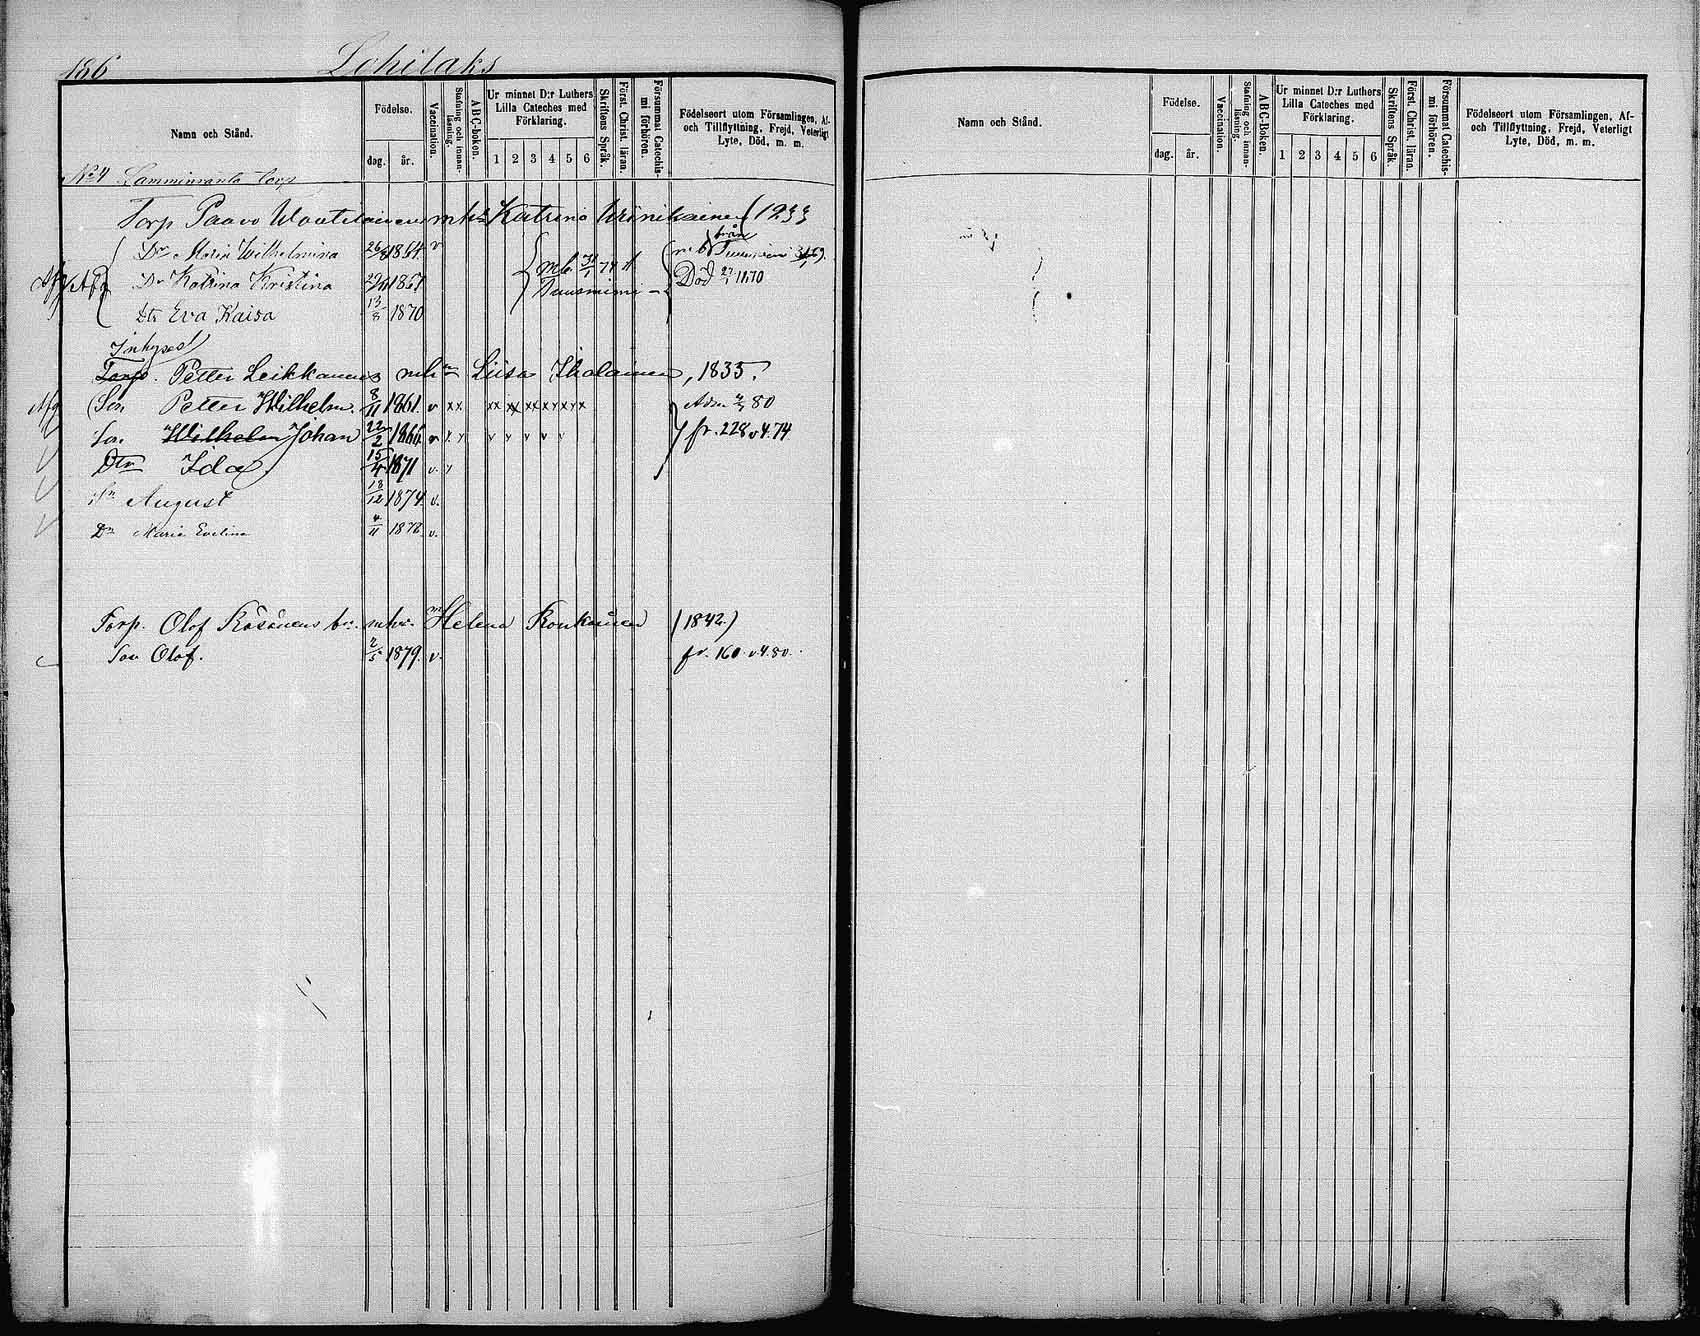 186 Lohilaks
Namn och Stånd.
Födelse.
dag. år.
Vaccination.
Stafning och innanläsning.
ABC-boken.
Ur minnet D:r Luthers Lilla Cateches med Förklaring.
1 2 3 4 5 6
Skriftens Språk.
Först. Christ. läran.
Försummat Catechismi förhören.
Födelseort utom Församlingen, Af- och Tillflyttning, Frejd, Veterligt Lyte, Död, m. m.
No 4 Lamminranta torp
Torp Paavo mhu Katrina (1233
Dr Maria Wilhelmina 26/8 1864. v från
Dr Katrina Kristina 1867 mb 31/1 74 Död 1870
Dtr Eva Kaisa 13/8 1870
Inhyses
Torp. Petter Leikkanens mhu Liisa Iholainen, 1835.
Son Petter Wilhelm. 8/11 1861. v xx xx xx xx xx x x Adm. 80
Son Wilhelm Johan 22/2 1866 v x v v v v v v fr. 228 v4.74
Dtr Ida 15/4 1871 v. v
Sn August 18/12 1874. v.
Dr Maria Evelina 4/11 1878. v.
Torp. Olof Räsänens br. mhu. Helena Ronkainen (1842.)
Son Olof. 2/5 1879. v. fr. 160 v4.80.
Namn och Stånd.
Födelse.
dag. år.
Vaccination.
Stafning och innanläsning.
ABC-Boken.
Ur minnet D:r Luthers Lilla Cateches med Förklaring.
1 2 3 4 5 6
Skriftens Språk.
Först. Christ. läran.
Försummat Catechismi förhören.
Födelseort utom Församlingen, Af- och Tillflyttning, Frejd, Veterligt Lyte, Död, m. m.